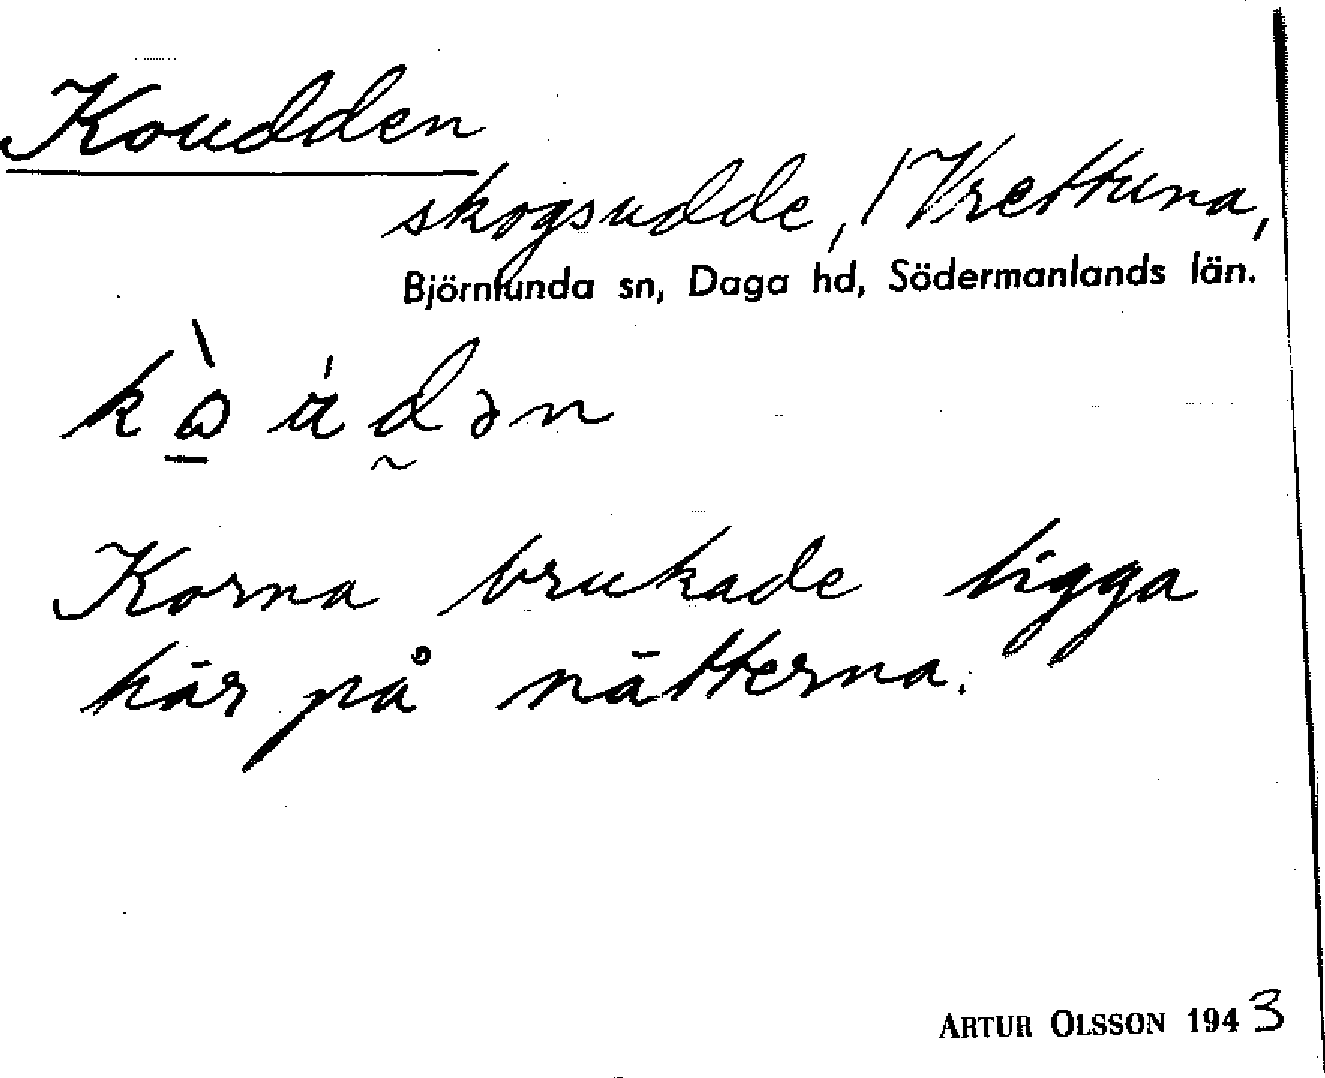 Koudden
skogsudde, / Vrettuna,
Björnlunda sn, Daga hd, Södermanlands län.
Korna brukade ligga
här på nätterna.
ARTUR OLSSON 1943